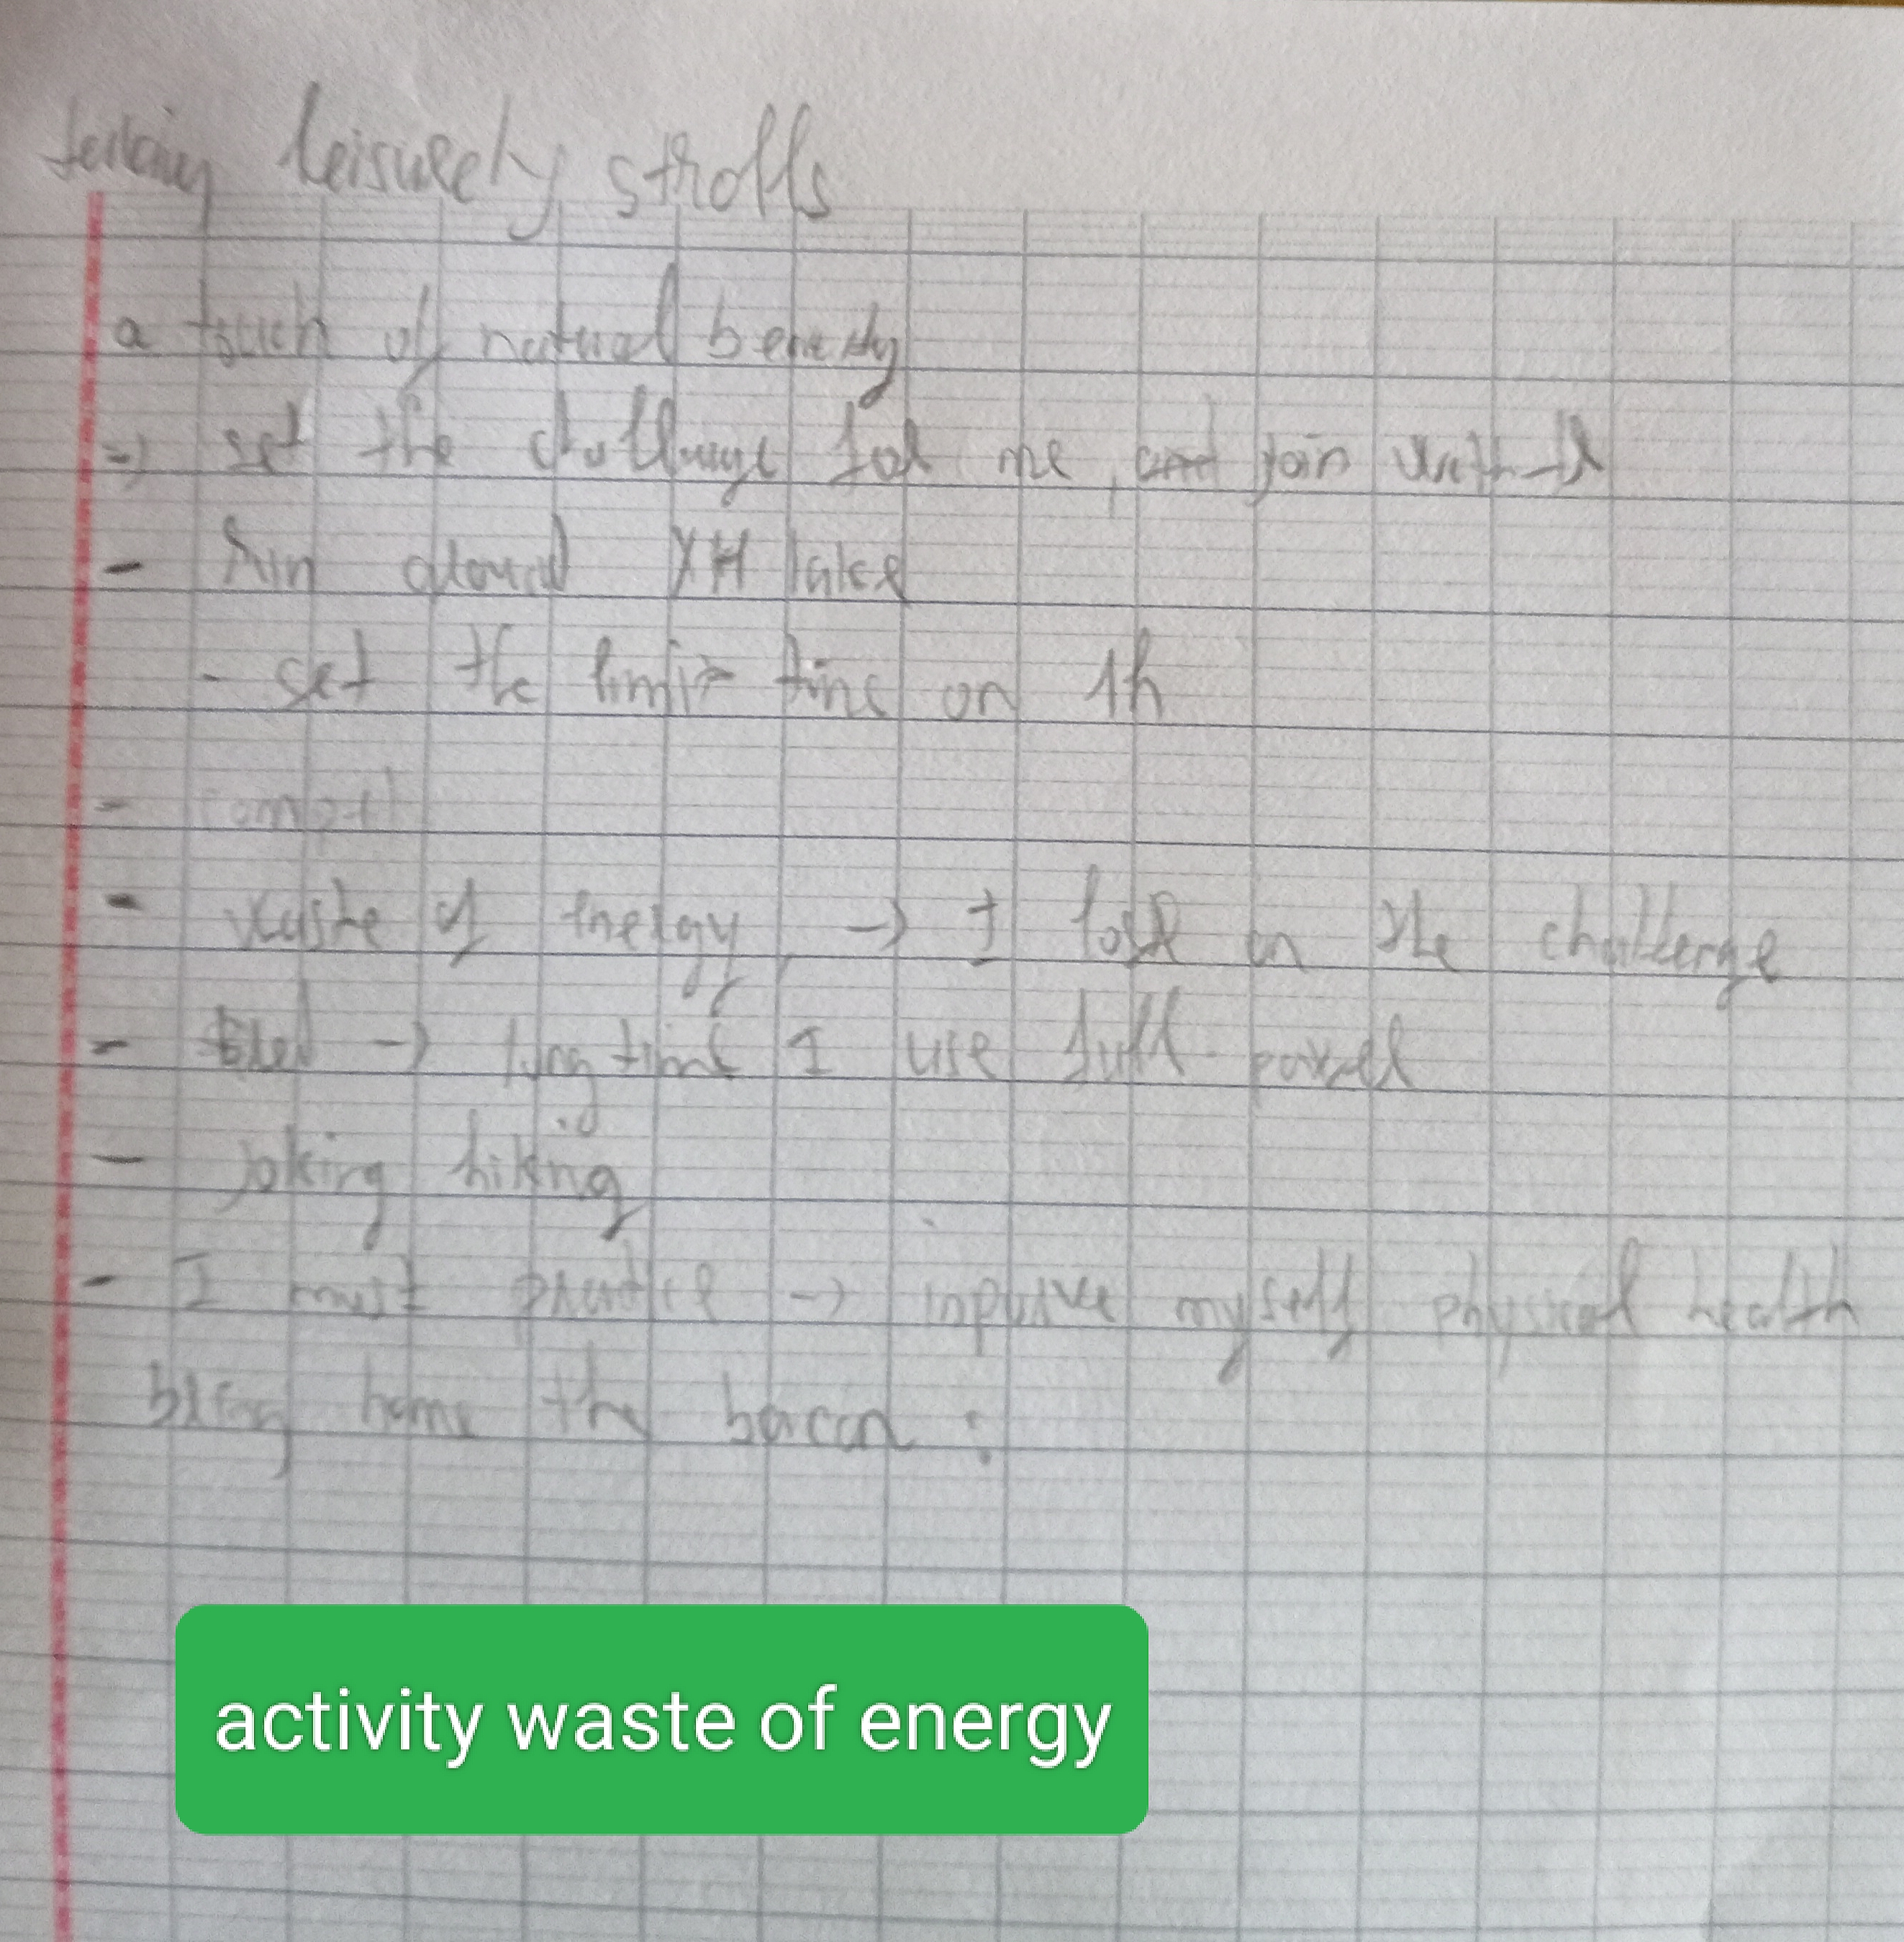 taking leisurely strolls
a touch of natural beauty
=) set the challenge for me, and join with
- Run around XH lake
- set the limit time on 1h
-
- waste of energy -> I lose in the challenge
- tired -> long time I use full power
- joking hiking
- I must practice -> improve myself physical health
bring home the bacon :
activity waste of energy